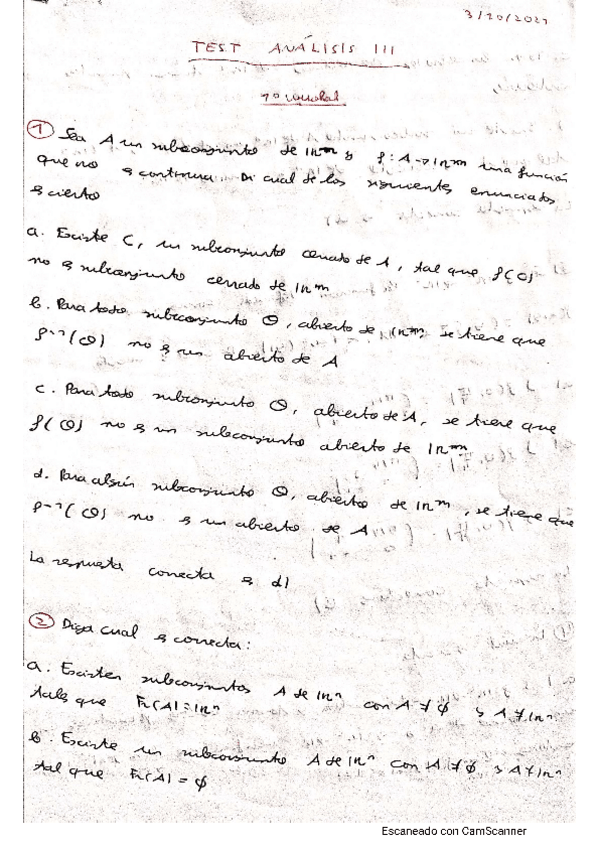 3/10/2021
TEST ANÁLISIS III
1º
① Sea A un subconjunto de ℝⁿ y f: A → ℝᵐ una función
que no es continua. Di cual de los siguientes enunciados
es cierto
a. Existe C, un subconjunto cerrado de A, tal que f(C)
no es subconjunto cerrado de ℝᵐ
b. Para todo subconjunto Θ, abierto de ℝᵐ, se tiene que
f⁻¹(Θ) no es un abierto de A
c. Para todo subconjunto Θ, abierto de A, se tiene que
f(Θ) no es un subconjunto abierto de ℝᵐ
d. Para algún subconjunto Θ, abierto de ℝᵐ, se tiene que
f⁻¹(Θ) no es un abierto de A
La respuesta correcta es d)
② Diga cual es correcta:
a. Existen subconjuntos A de ℝⁿ con A ≠ ∅ y A ≠ ℝⁿ
tales que Fr(A) = ℝⁿ
b. Existe un subconjunto A de ℝⁿ con A ≠ ∅ y A ≠ ℝⁿ
tal que Fr(A) = ∅
Escaneado con CamScanner